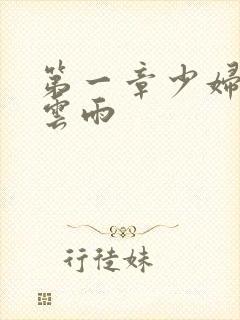 第一章少婦
雲雨
行徒妹